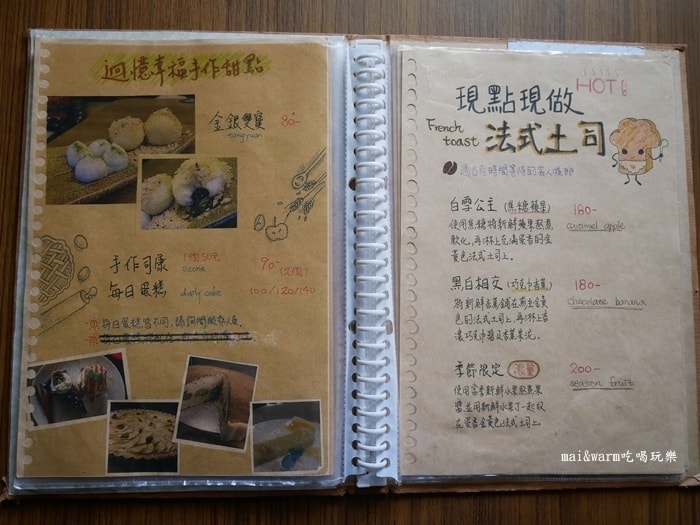 迴憶幸福手作甜點
金銀雙寶 80-
tangyuan
手作司康 1個50元 90-(2個)
scone
每日蛋糕 daily cake 100/120/140
每日蛋糕皆不同,請詢問服務人員.
HOT
現點現做
French toast 法式土司
適合有時間等待的客人喔
白雪公主(焦糖蘋果) 180-
caramel apple
使用焦糖將新鮮蘋果熬煮
軟化,再淋上在滿蛋香的金
黃色法式土司上.
黑白相交(巧克力香蕉) 180-
chocolate banana
將新鮮香蕉鋪在黃金
色的法式土司上,再淋上香
濃巧克力醬及香蕉
季節限定 限量 200-
season fruit
使用當季新鮮水果熬煮果
醬,並用新鮮水果丁一起放
在蛋香金黃色法式土司上.
mai&warm吃喝玩樂